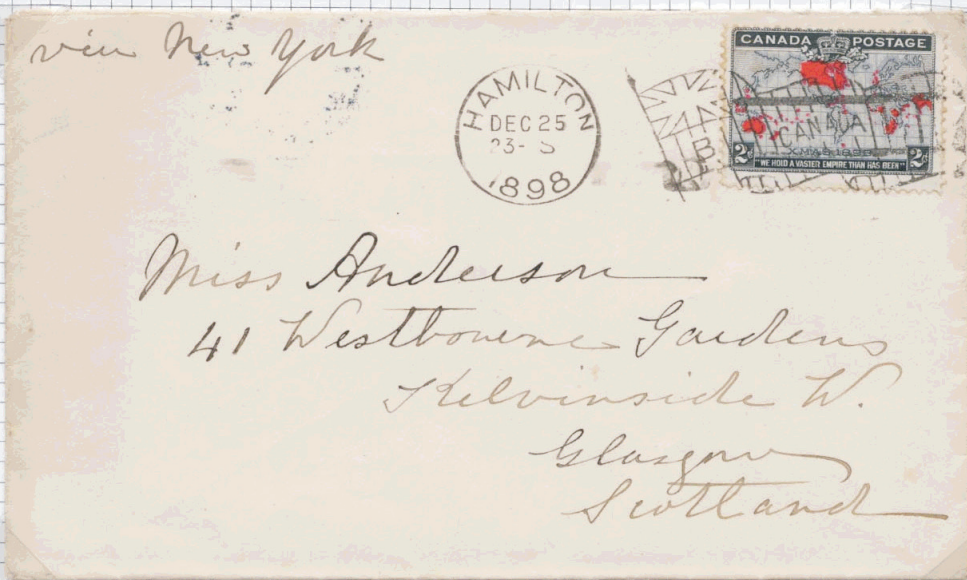 via New York
HAMILTON
DEC 25
23-
1898
CANADA POSTAGE
CANADA
XMAS 1898
2c 2c
"WE HOLD A VASTER EMPIRE THAN HAS BEEN"
Miss Anderson
41 Westbourne Gardens
Kelvinside W.
Glasgow
Scotland